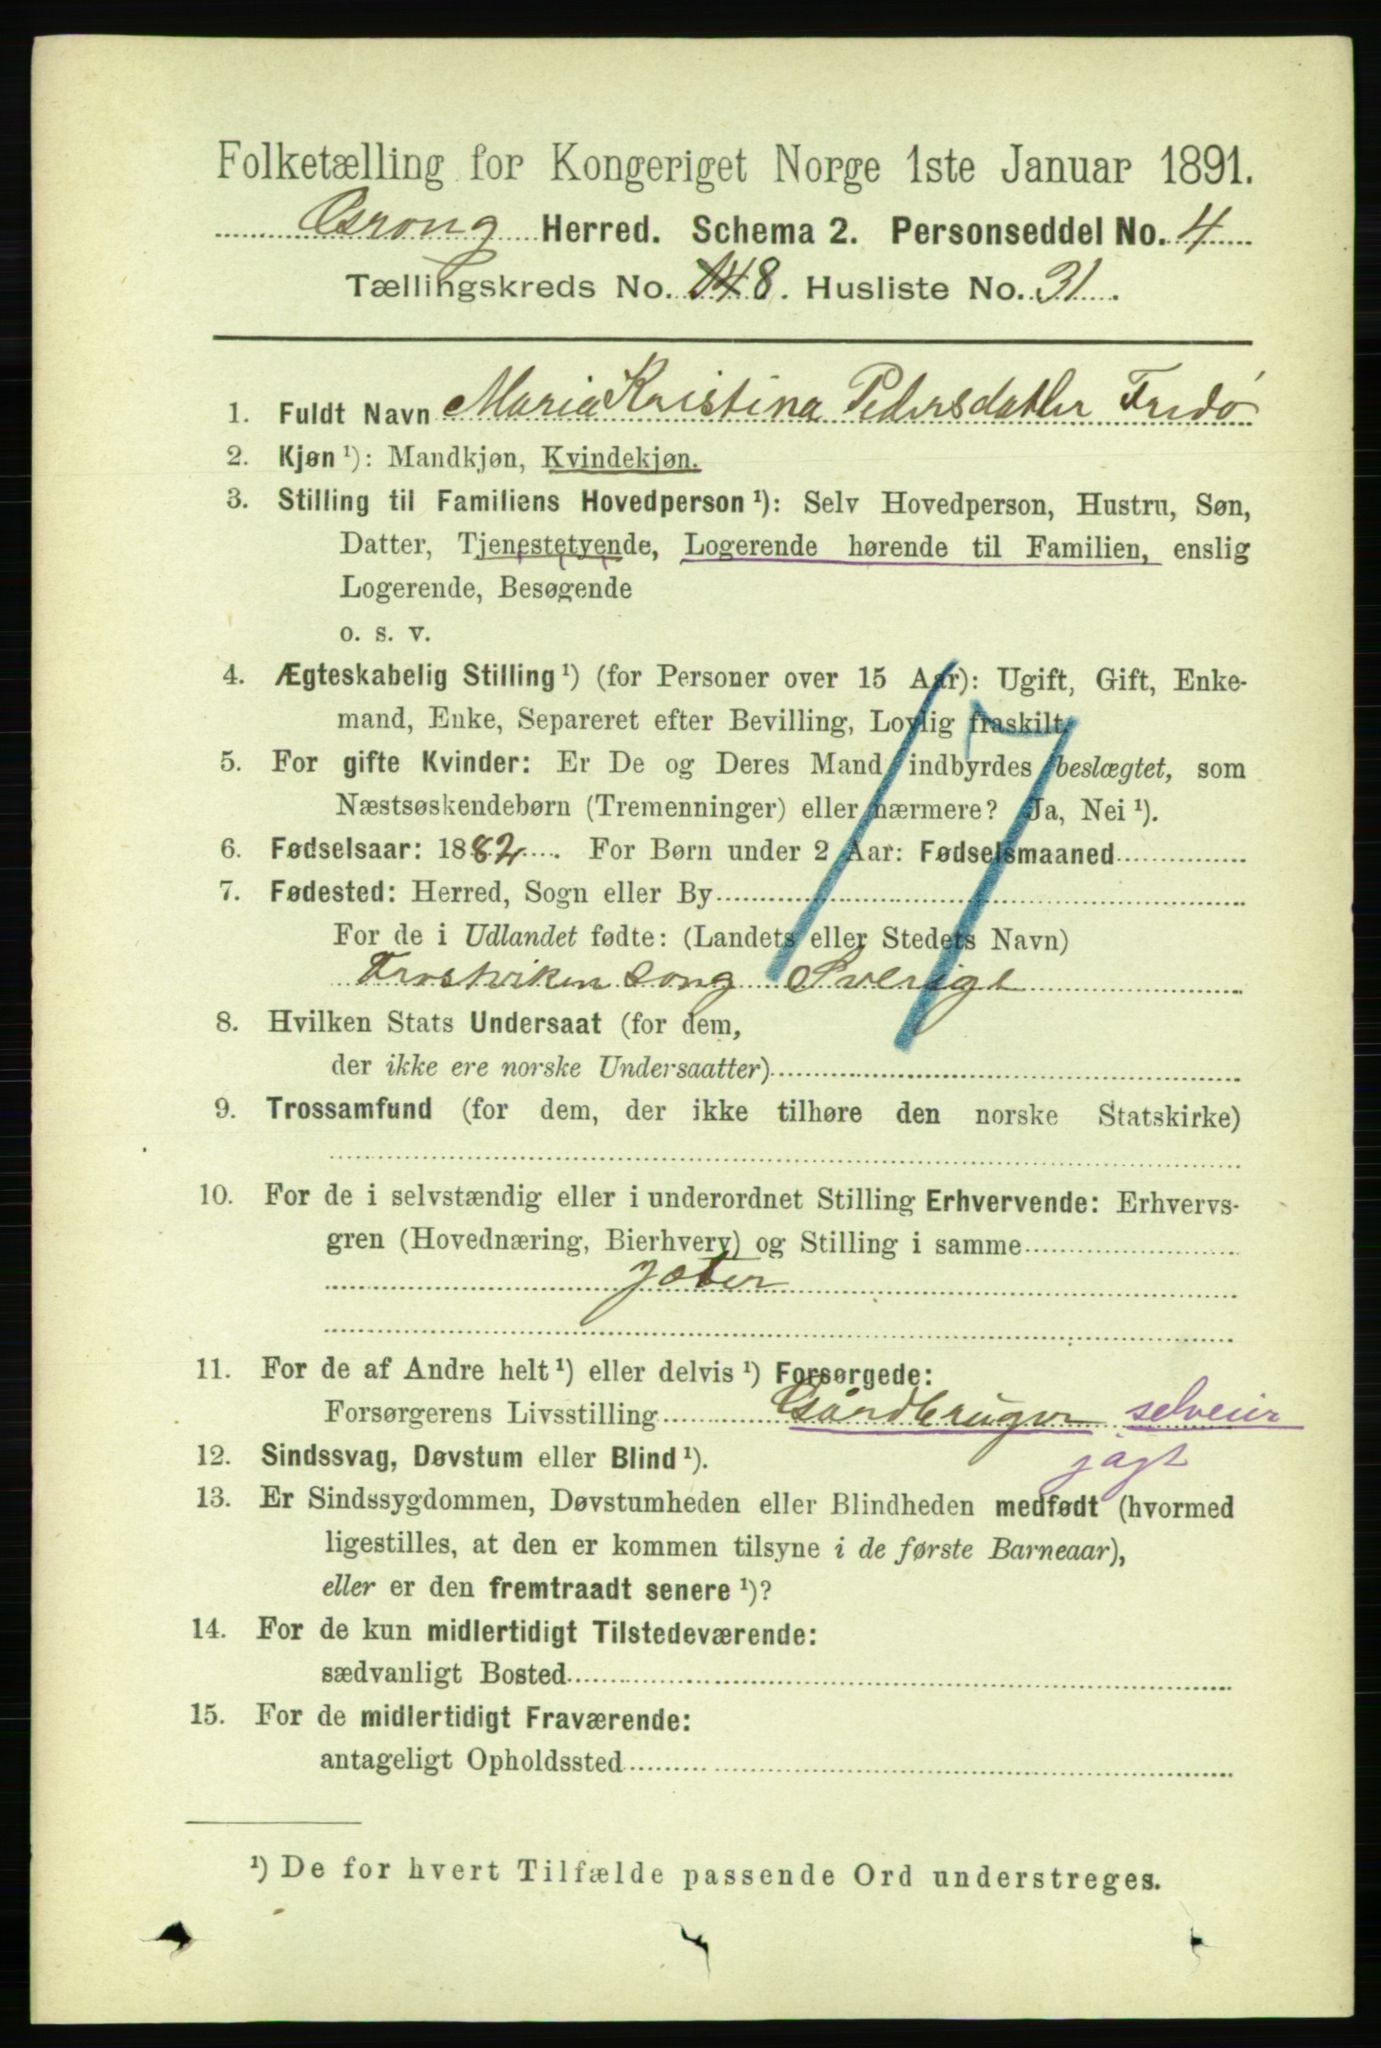 Folketælling for Kongeriget Norge 1ste Januar 1891.
Grong Herred. Schema 2. Personseddel No. 4
Tællingskreds No. 8. Husliste No. 31.
1. Fuldt Navn Maria Kristina Pedersdatter
2. Kjøn ¹): Mandkjøn, Kvindekjøn.
3. Stilling til Familiens Hovedperson ¹): Selv Hovedperson, Hustru, Søn,
Datter, Tjenestetyende, Logerende hørende til Familien, enslig
Logerende, Besøgende
o. s. v.
4. Ægteskabelig Stilling ¹) (for Personer over 15 Aar): Ugift, Gift, Enke-
mand, Enke, Separeret efter Bevilling, Lovlig fraskilt.
5. For gifte Kvinder: Er De og Deres Mand indbyrdes beslægtet, som
Næstsøskendebørn (Tremenninger) eller nærmere? Ja, Nei ¹).
6. Fødselsaar: 1882. For Børn under 2 Aar: Fødselsmaaned
7. Fødested: Herred, Sogn eller By
For de i Udlandet fødte: (Landets eller Stedets Navn)
Frostviken Song Sverige
8. Hvilken Stats Undersaat (for dem,
der ikke ere norske Undersaatter)
9. Trossamfund (for dem, der ikke tilhøre den norske Statskirke)
10. For de i selvstændig eller i underordnet Stilling Erhvervende: Erhvervs-
gren (Hovednæring, Bierhverv) og Stilling i samme
11. For de af Andre helt ¹) eller delvis ¹) Forsørgede:
Forsørgerens Livsstilling Gårdbruger selveier
jagt
12. Sindssvag, Døvstum eller Blind ¹).
13. Er Sindssygdommen, Døvstumheden eller Blindheden medfødt (hvormed
ligestilles, at den er kommen tilsyne i de første Barneaar),
eller er den fremtraadt senere ¹)?
14. For de kun midlertidigt Tilstedeværende:
sædvanligt Bosted
15. For de midlertidigt Fraværende:
antageligt Opholdssted
¹) De for hvert Tilfælde passende Ord understreges.